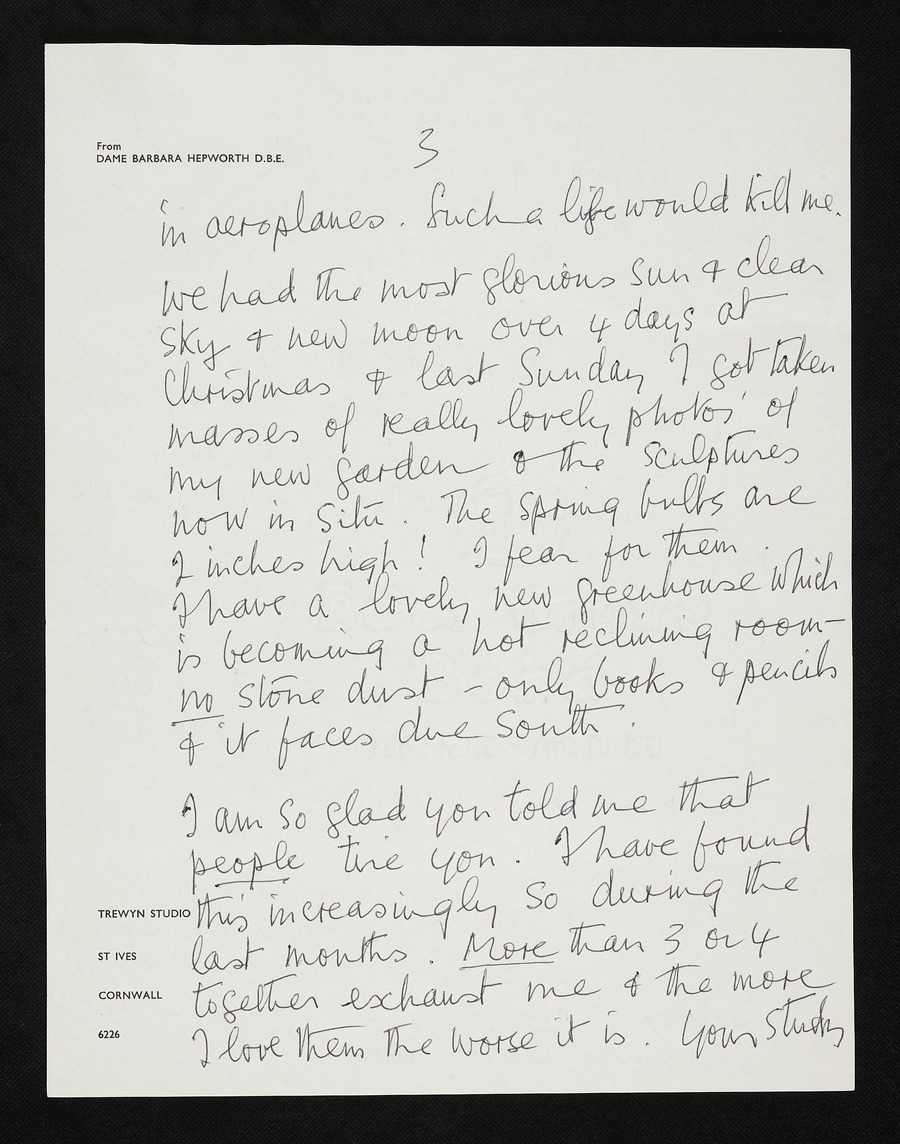 From
DAME BARBARA HEPWORTH D.B.E.
3
in aeroplanes. Such a life would kill me.
We had the most glorious sun & clear
sky & new moon over 4 days at
Christmas & last Sunday I got taken
masses of really lovely photos' of
my new garden & the sculptures
now in situ. The spring bulbs are
2 inches high! I fear for them.
I have a lovely new greenhouse which
is becoming a hot reclining room –
no stone dust – only books & pencils
& it faces due South.
I am so glad you told me that
people tire you. I have found
this increasingly so during the
last months. More than 3 or 4
together exhaust me & the more
I love them the worse it is. Your study
TREWYN STUDIO
ST IVES
CORNWALL
6226